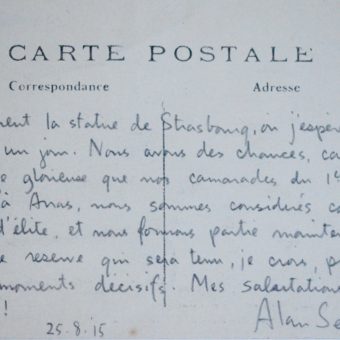 CARTE POSTALE
Correspondance Adresse
ment la statue de Strasbourg, où j'espère
un jour. Nous avons des chances, ca
e glorieuse que nos camarades du 1
à Arras, nous sommes considérés co
d'élite, et nous formons partie mainten
e reserve qui sera tenu, je crois, p
moments décisifs. Mes salutation
! Alan Se
25.8.15